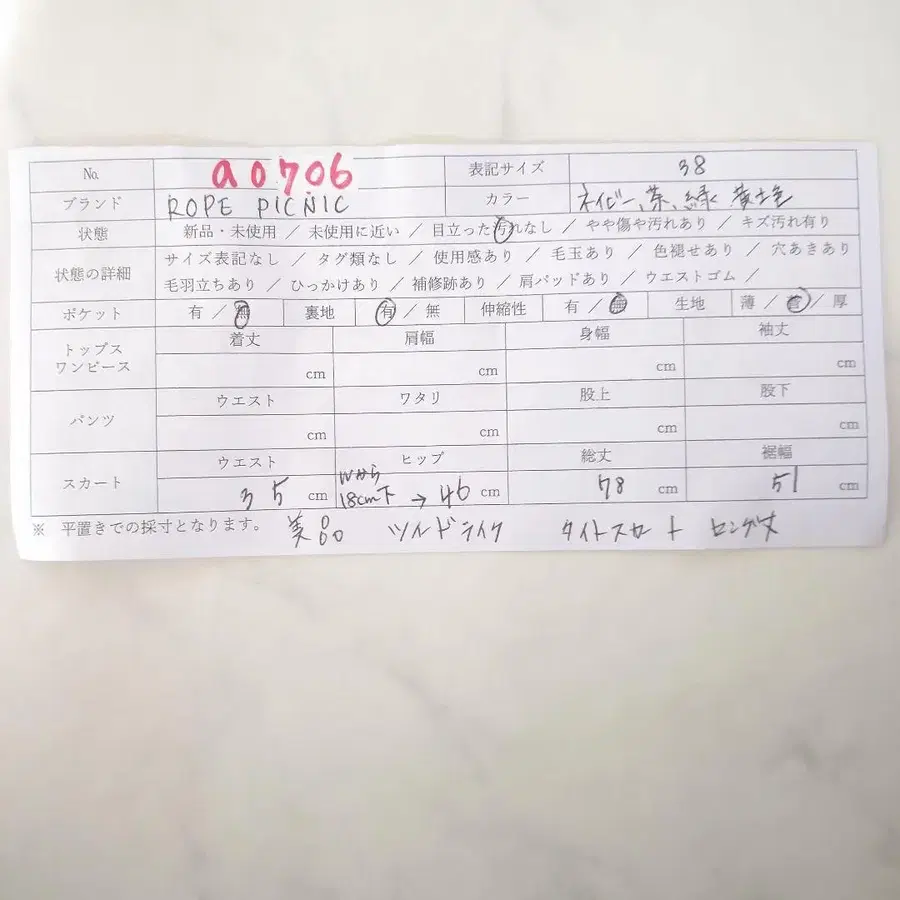 No. a0706 表記サイズ 38
ブランド ROPE PICNIC カラー ネイビー、茶、緑、黄土色
状態 新品・未使用 ／ 未使用に近い ／ 目立った汚れなし ／ やや傷や汚れあり ／ キズ汚れ有り
状態の詳細 サイズ表記なし ／ タグ類なし ／ 使用感あり ／ 毛玉あり ／ 色褪せあり ／ 穴あきあり
毛羽立ちあり ／ ひっかけあり ／ 補修跡あり ／ 肩パッドあり ／ ウエストゴム ／
ポケット 有 ／ 無 裏地 有 ／ 無 伸縮性 有 ／ 無 生地 薄 ／ 普 ／ 厚
トップス ワンピース 着丈 肩幅 身幅 袖丈
cm cm cm cm
パンツ ウエスト ワタリ 股上 股下
cm cm cm cm
スカート ウエスト ヒップ 総丈 裾幅
35 cm Wから 18cm下 → 46 cm 78 cm 51 cm
※ 平置きでの採寸となります。 美品 ツイードライク タイトスカート ロング丈